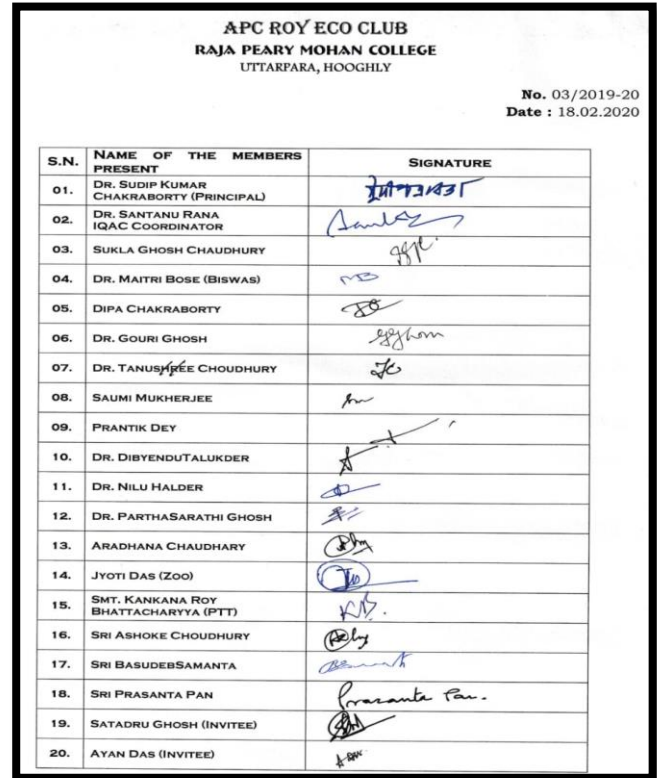 APC ROY ECO CLUB
RAJA PEARY MOHAN COLLEGE
UTTARPARA, HOOGHLY
No. 03/2019-20
Date : 18.02.2020
S.N. NAME OF THE MEMBERS PRESENT SIGNATURE
01. DR. SUDIP KUMAR
CHAKRABORTY (PRINCIPAL)
02. DR. SANTANU RANA
IQAC COORDINATOR
03. SUKLA GHOSH CHAUDHURY
04. DR. MAITRI BOSE (BISWAS) MB
05. DIPA CHAKRABORTY
06. DR. GOURI GHOSH
07. DR. TANUSHREE CHOUDHURY
08. SAUMI MUKHERJEE
09. PRANTIK DEY
10. DR. DIBYENDUTALUKDER
11. DR. NILU HALDER
12. DR. PARTHASARATHI GHOSH
13. ARADHANA CHAUDHARY
14. JYOTI DAS (ZOO)
15. SMT. KANKANA ROY
BHATTACHARYYA (PTT) KB.
16. SRI ASHOKE CHOUDHURY
17. SRI BASUDEBSAMANTA
18. SRI PRASANTA PAN Prasanta Pan.
19. SATADRU GHOSH (INVITEE)
20. AYAN DAS (INVITEE)